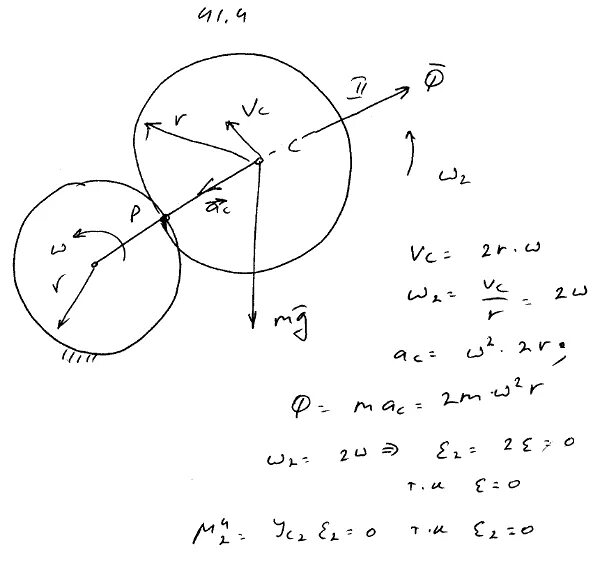 41.4
II
Φ̄
r
Vc
C
ω₂
P
a̅c
ω
r
mḡ
Vc = 2r·ω
ω₂ = Vc/r = 2ω
ac = ω²·2r;
Φ = mac = 2m·ω²r
ω₂ = 2ω ⇒ ε₂ = 2ε = 0
т.к ε=0
M₂ᵘ = Jc₂ ε₂ = 0 т.к ε₂=0